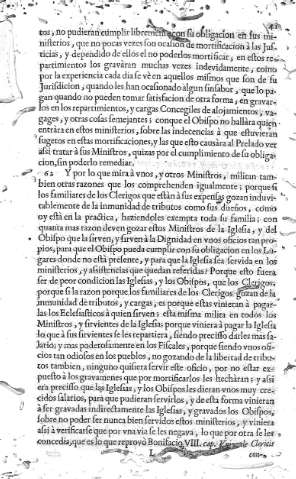 tos, no pudieran cumplir libremente con su obligacion en sus mi-
nisterios, que no pocas vezes son ocasion de mortificacion à las Jus-
ticias, y dependido de ellos el no poderlos mortificar, en estos re-
partimientos los gravàran muchas vezes indevidamente, como
por la experiencia cada dia se vè en aquellos mismos que son de su
Jurisdicion, quando les han ocasionado algun sinsabor, que lo pa-
gan quando no pueden tomar satisfacion de otra forma, en gravar-
los en los repartimientos, y cargas Concegiles de alojamientos, va-
gages, y otras cosas semejantes; conque el Obispo no hallàra quien
entràra en estos ministerios, sobre las indecencias à que estuvieran
sugetos en estas mortificaciones, y las que esto causàra al Prelado ver
assi tratar à sus Ministros, quizas por el cumplimiento de su obliga-
cion, sin poderlo remediar.
62 Y por lo que mira à vnos, y otros Ministros, militan tam-
bien otras razones que los comprehenden igualmente; porque si
los familiares de los Clerigos que estàn à sus expensas gozan induvi-
tablemente de la inmunidad de tributos como sus dueños, como
oy està en la practica, haziendoles exempta toda su familia; con
quanta mas razon deven gozar estos Ministros de la Iglesia, y del
Obispo que la sirven, y sirven à la Dignidad en vnos oficios tan pro-
pios, para que el Obispo pueda cumplir con su obligacion en los Lu-
gares donde no està presente, y para que la Iglesia sea servida en los
ministerios, y assistencias que quedan referidas? Porque esto fuera
ser de peor condicion las Iglesias, y los Obispos, que los Clerigos;
porque si la razon porque los familiares de los Clerigos gozan de la
inmunidad de tributos, y cargas, es porque estas vinieran à pagar-
las los Eclesiasticos à quien sirven: esta misma milita en todos los
Ministros, y sirvientes de la Iglesia: porque viniera à pagar la Iglesia
lo que à sus sirvientes se les repartiera, siendo preciso darles mas sa-
lario; y mas poderosamente en los Fiscales, porque siendo vnos ofi-
cios tan odiosos en los pueblos, no gozando de la libertad de tribu-
tos tambien, ninguno quisiera servir este oficio, por no estar ex-
puesto à los gravamenes que por mortificarlos les hecharàn: y assi
era preciso que las Iglesias, y los Obispos les dieran vnos muy cre-
cidos salarios, para que pudieran servirlos, y de esta forma vinieran
à ser gravadas indirectamente las Iglesias, y gravados los Obispos,
sobre no poder ser nunca bien servidos estos ministerios, y viniera
assi à verificarse que por vna via se les negava, lo que por otra se les
concedia, que es lo que reprovò Bonifacio VIII. cap. Clericis
L